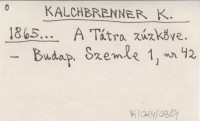 KALCHBRENNER K.
1865... A Tátra zúzköve.
- Budap. Szemle 1, nr 42